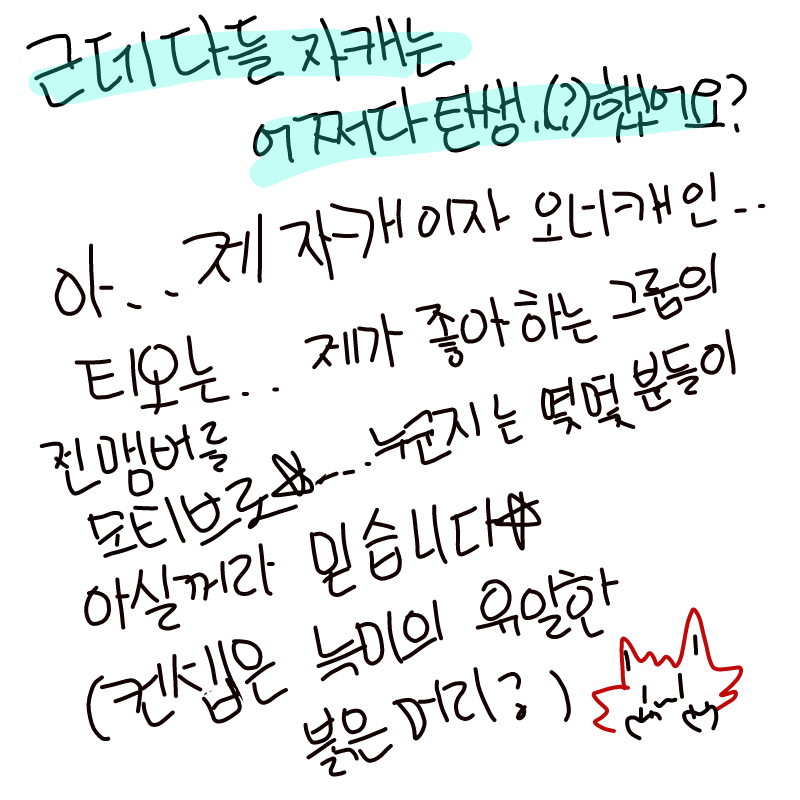 근데 다들 자캐는
어쩌다 탄생.(?)했어요?
아.. 제 자캐이자 오너캐인..
티오는.. 제가 좋아하는 그룹의
전맴버를
모티브로☆... 누군지는 몇몇 분들이
아실꺼라 믿습니다☆
(컨셉은 늑미의 유일한
붉은 머리?)